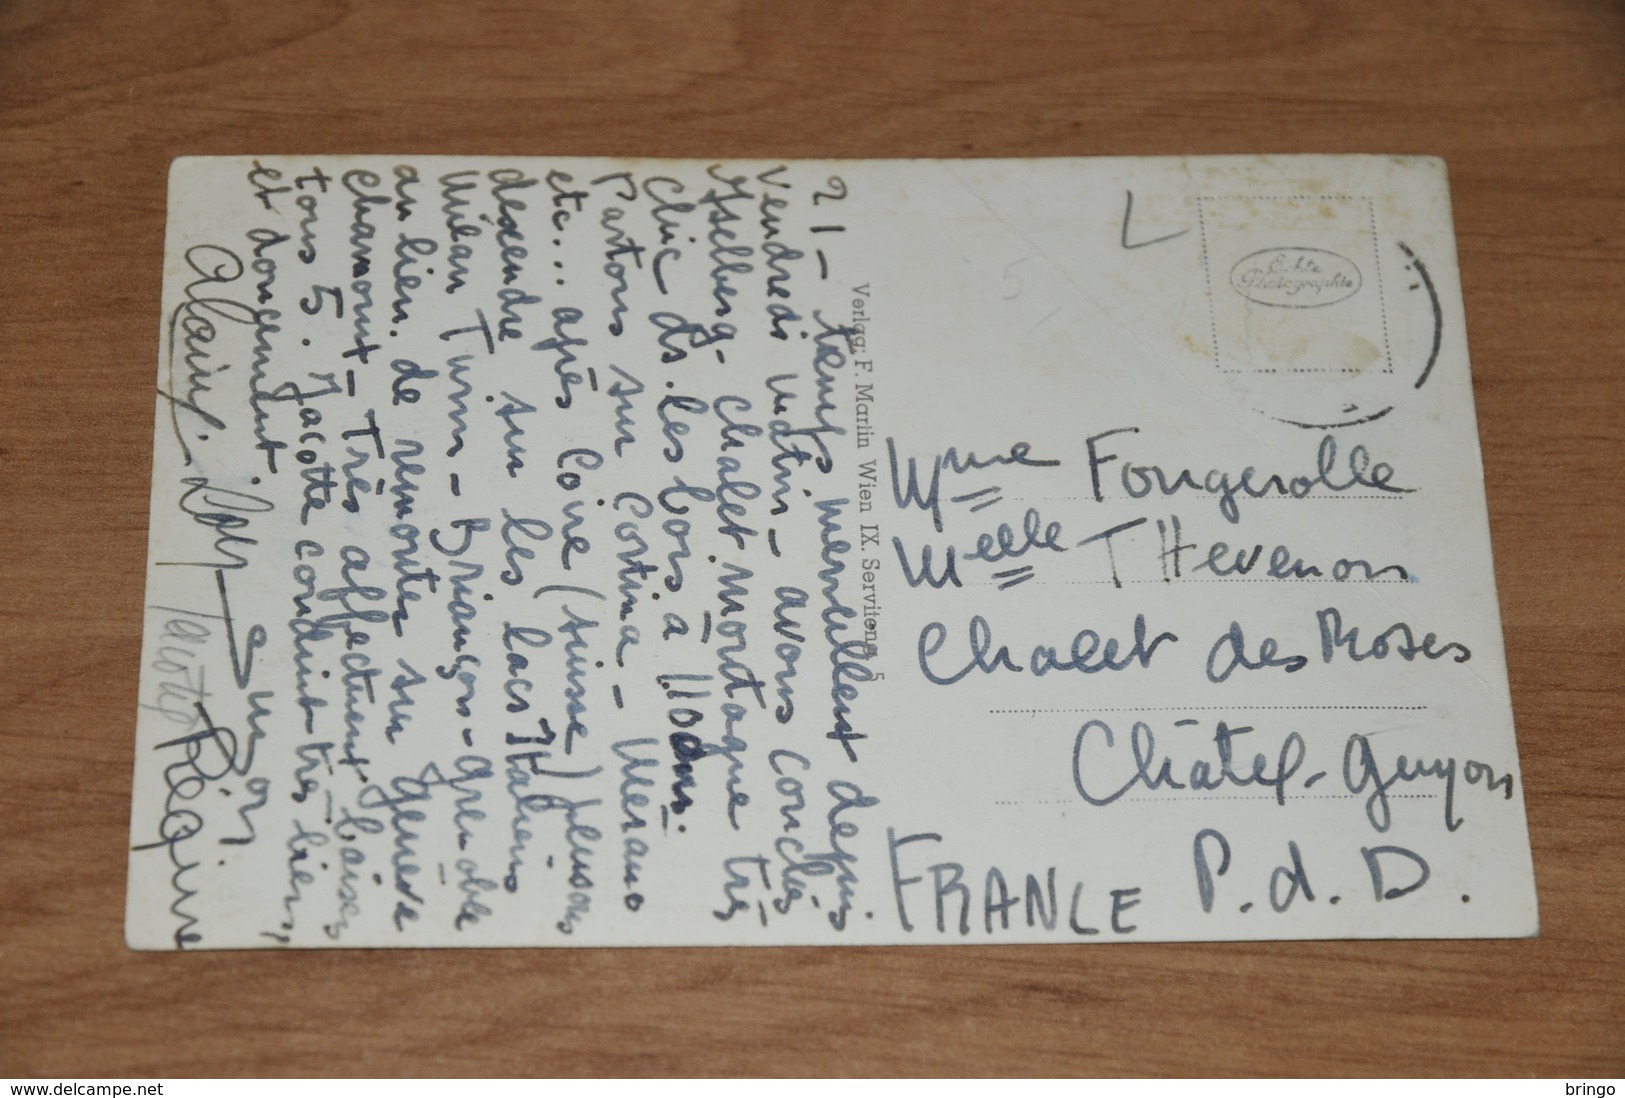 21 - temps merveilleux depuis
Vendredi matin - avons couchés
Iselberg - chalet montagne très
chic ds. les bois à 1100m.
Partons sur Cortina - Merano
etc... après Coire (suisse) pensons
descendre sur les lacs Italiens
Milan Turin - Briançon - Grenoble
au lieu de remonter sur Genève
Chamonix - Très affectueux baisers
tous 5. Jacotte conduit très bien,
et doucement.
Alain
Jacotte Régine
Verlag: F. Martin Wien IX. Serviteng. 5
L
Echte
Photographie
Mme Fougerolle
Melle THevenon
Chalet des Roses
Châtel-Guyon
P.d.D.
FRANCE
delcampe.net
bringo